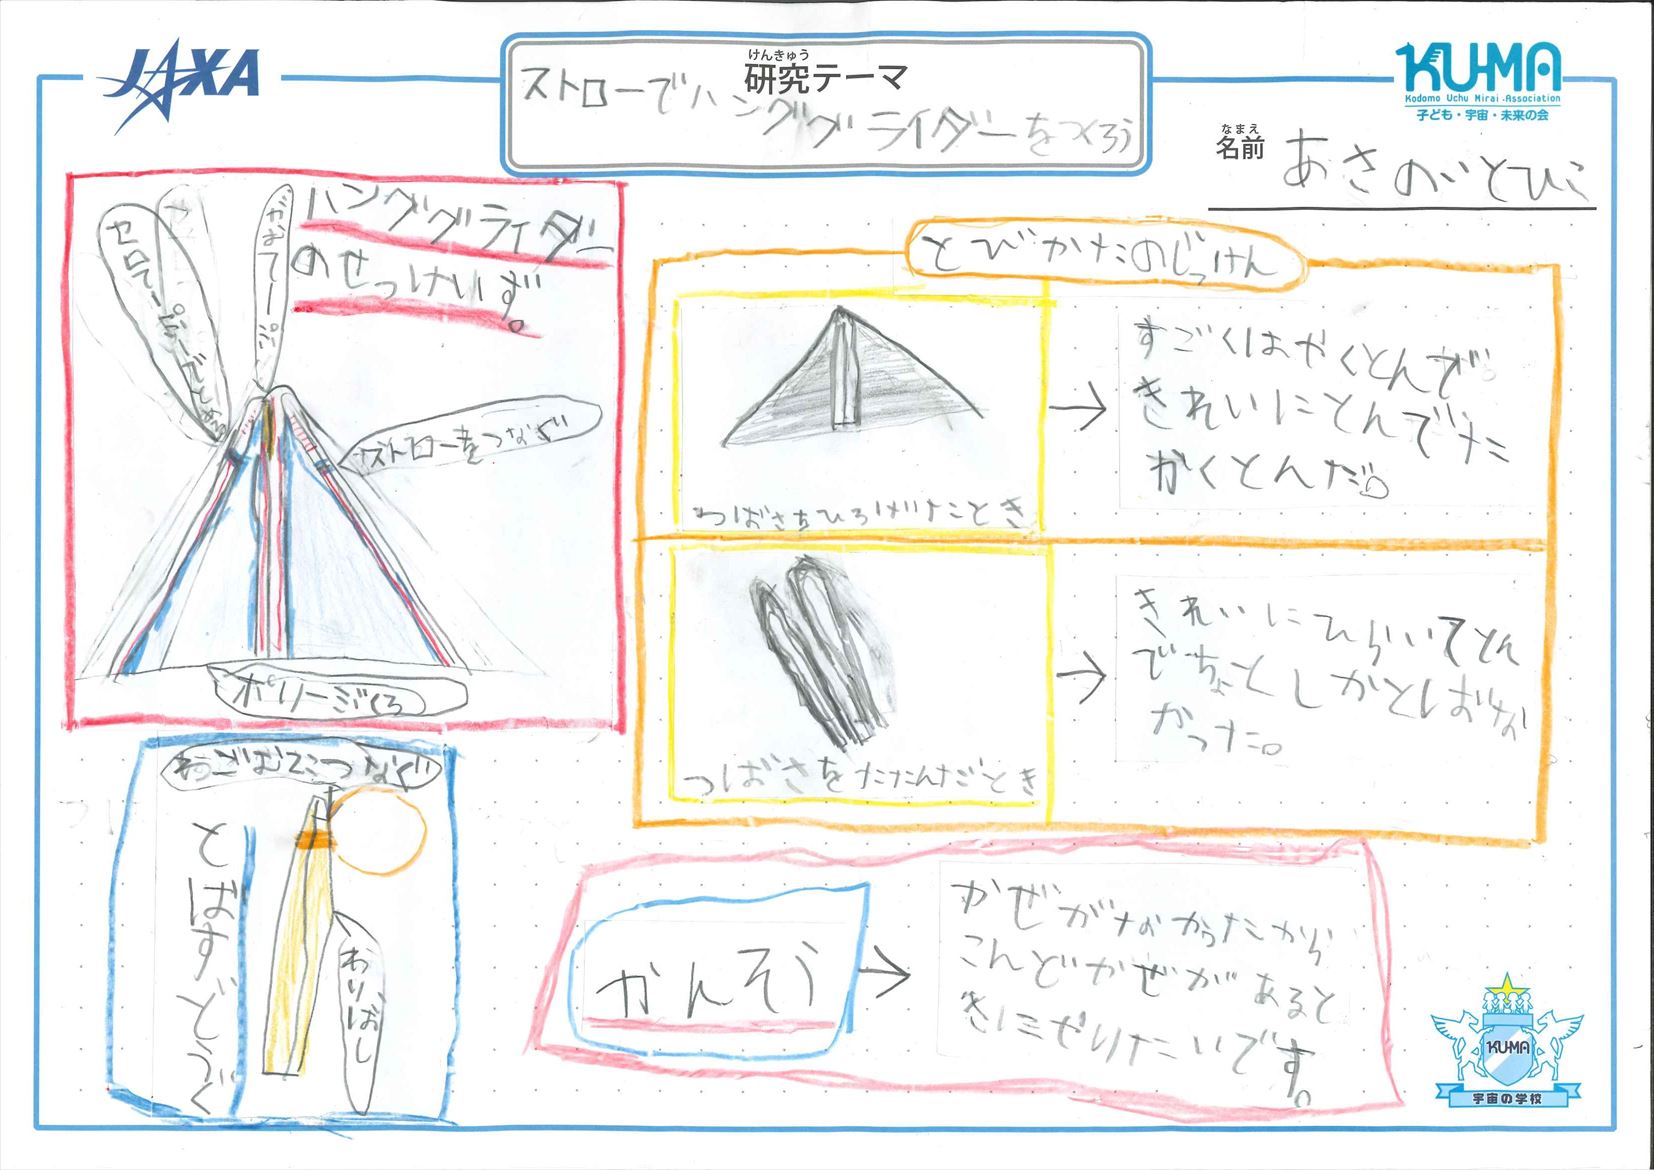 JAXA
けんきゅう
研究テーマ
ストローでハンググライダーをつくろう
KU-MA
Kodomo Uchu Mirai Association
子ども・宇宙・未来の会
なまえ
名前
あさのいとひこ
ハンググライダー
のせっけいず。
セロてーぷでとめる
がむてーぷ
ストローをつなぐ
ポリーぶくろ
とびかたのじっけん
つばさをひろげたとき
すごくはやくとんで。
きれいにとんでた
かくとんだ。
つばさをたたんだとき
きれいにひらいてとん
でちょとしかとばな
かった。
わごむでこつなぐ
とばすどうぐ
わりばし
かんそう
かぜがなかったから
こんどかぜがあると
きにやりたいです。
KU-MA
宇宙の学校